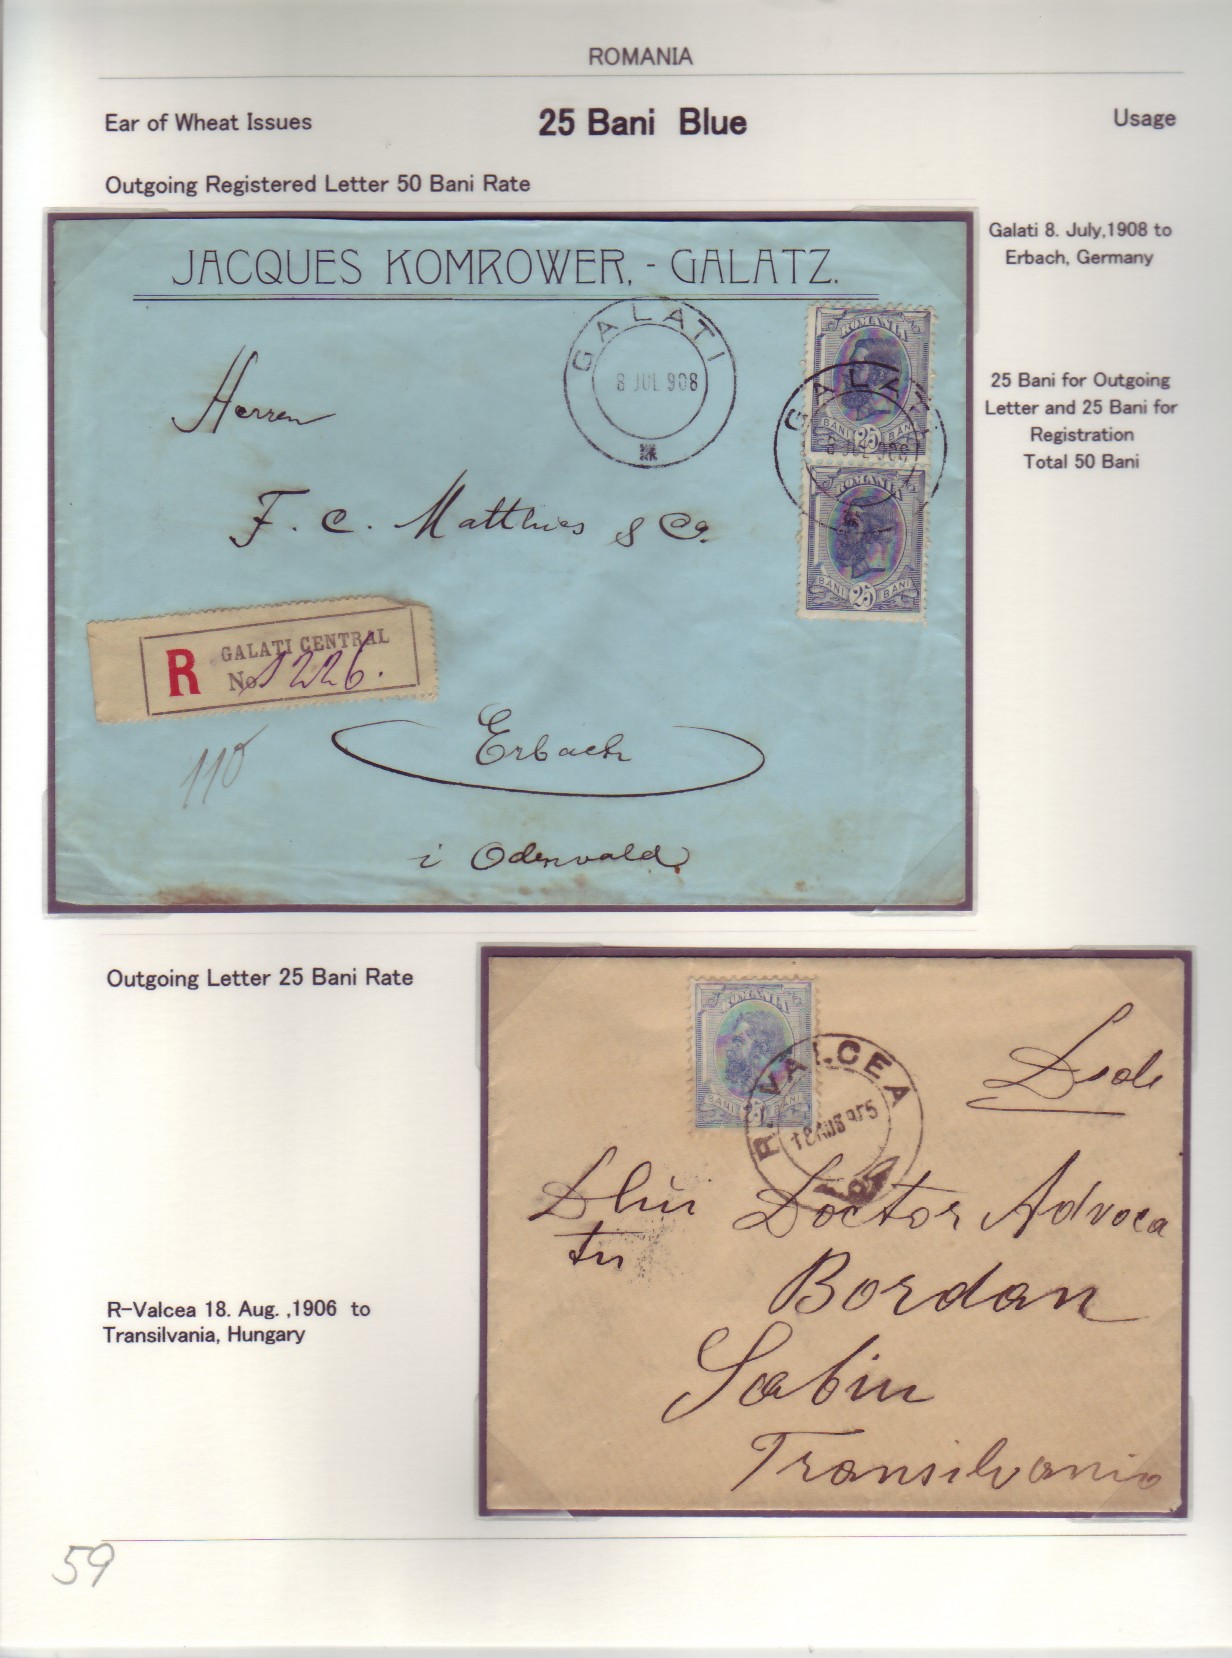 ROMANIA
Ear of Wheat Issues
25 Bani Blue
Usage
Outgoing Registered Letter 50 Bani Rate
Galati 8. July,1908 to
Erbach, Germany
25 Bani for Outgoing
Letter and 25 Bani for
Registration
Total 50 Bani
JACQUES KOMROWER, - GALATZ.
GALATI
8 JUL 908
ROMANIA
BANI 25 BANI
GALATI
8 JUL 908
ROMANIA
BANI 25 BANI
Herren
F. C. Matthies & Co.
R
GALATI CENTRAL
No 1226.
110
Erbach
i Odenwald
Outgoing Letter 25 Bani Rate
R-Valcea 18. Aug. ,1906 to
Transilvania, Hungary
ROMANIA
BANI 25 BANI
R. VALCEA
18 AUG 9
Doctor Advoca
tu
Bordan
Sabin
Transilvania
59